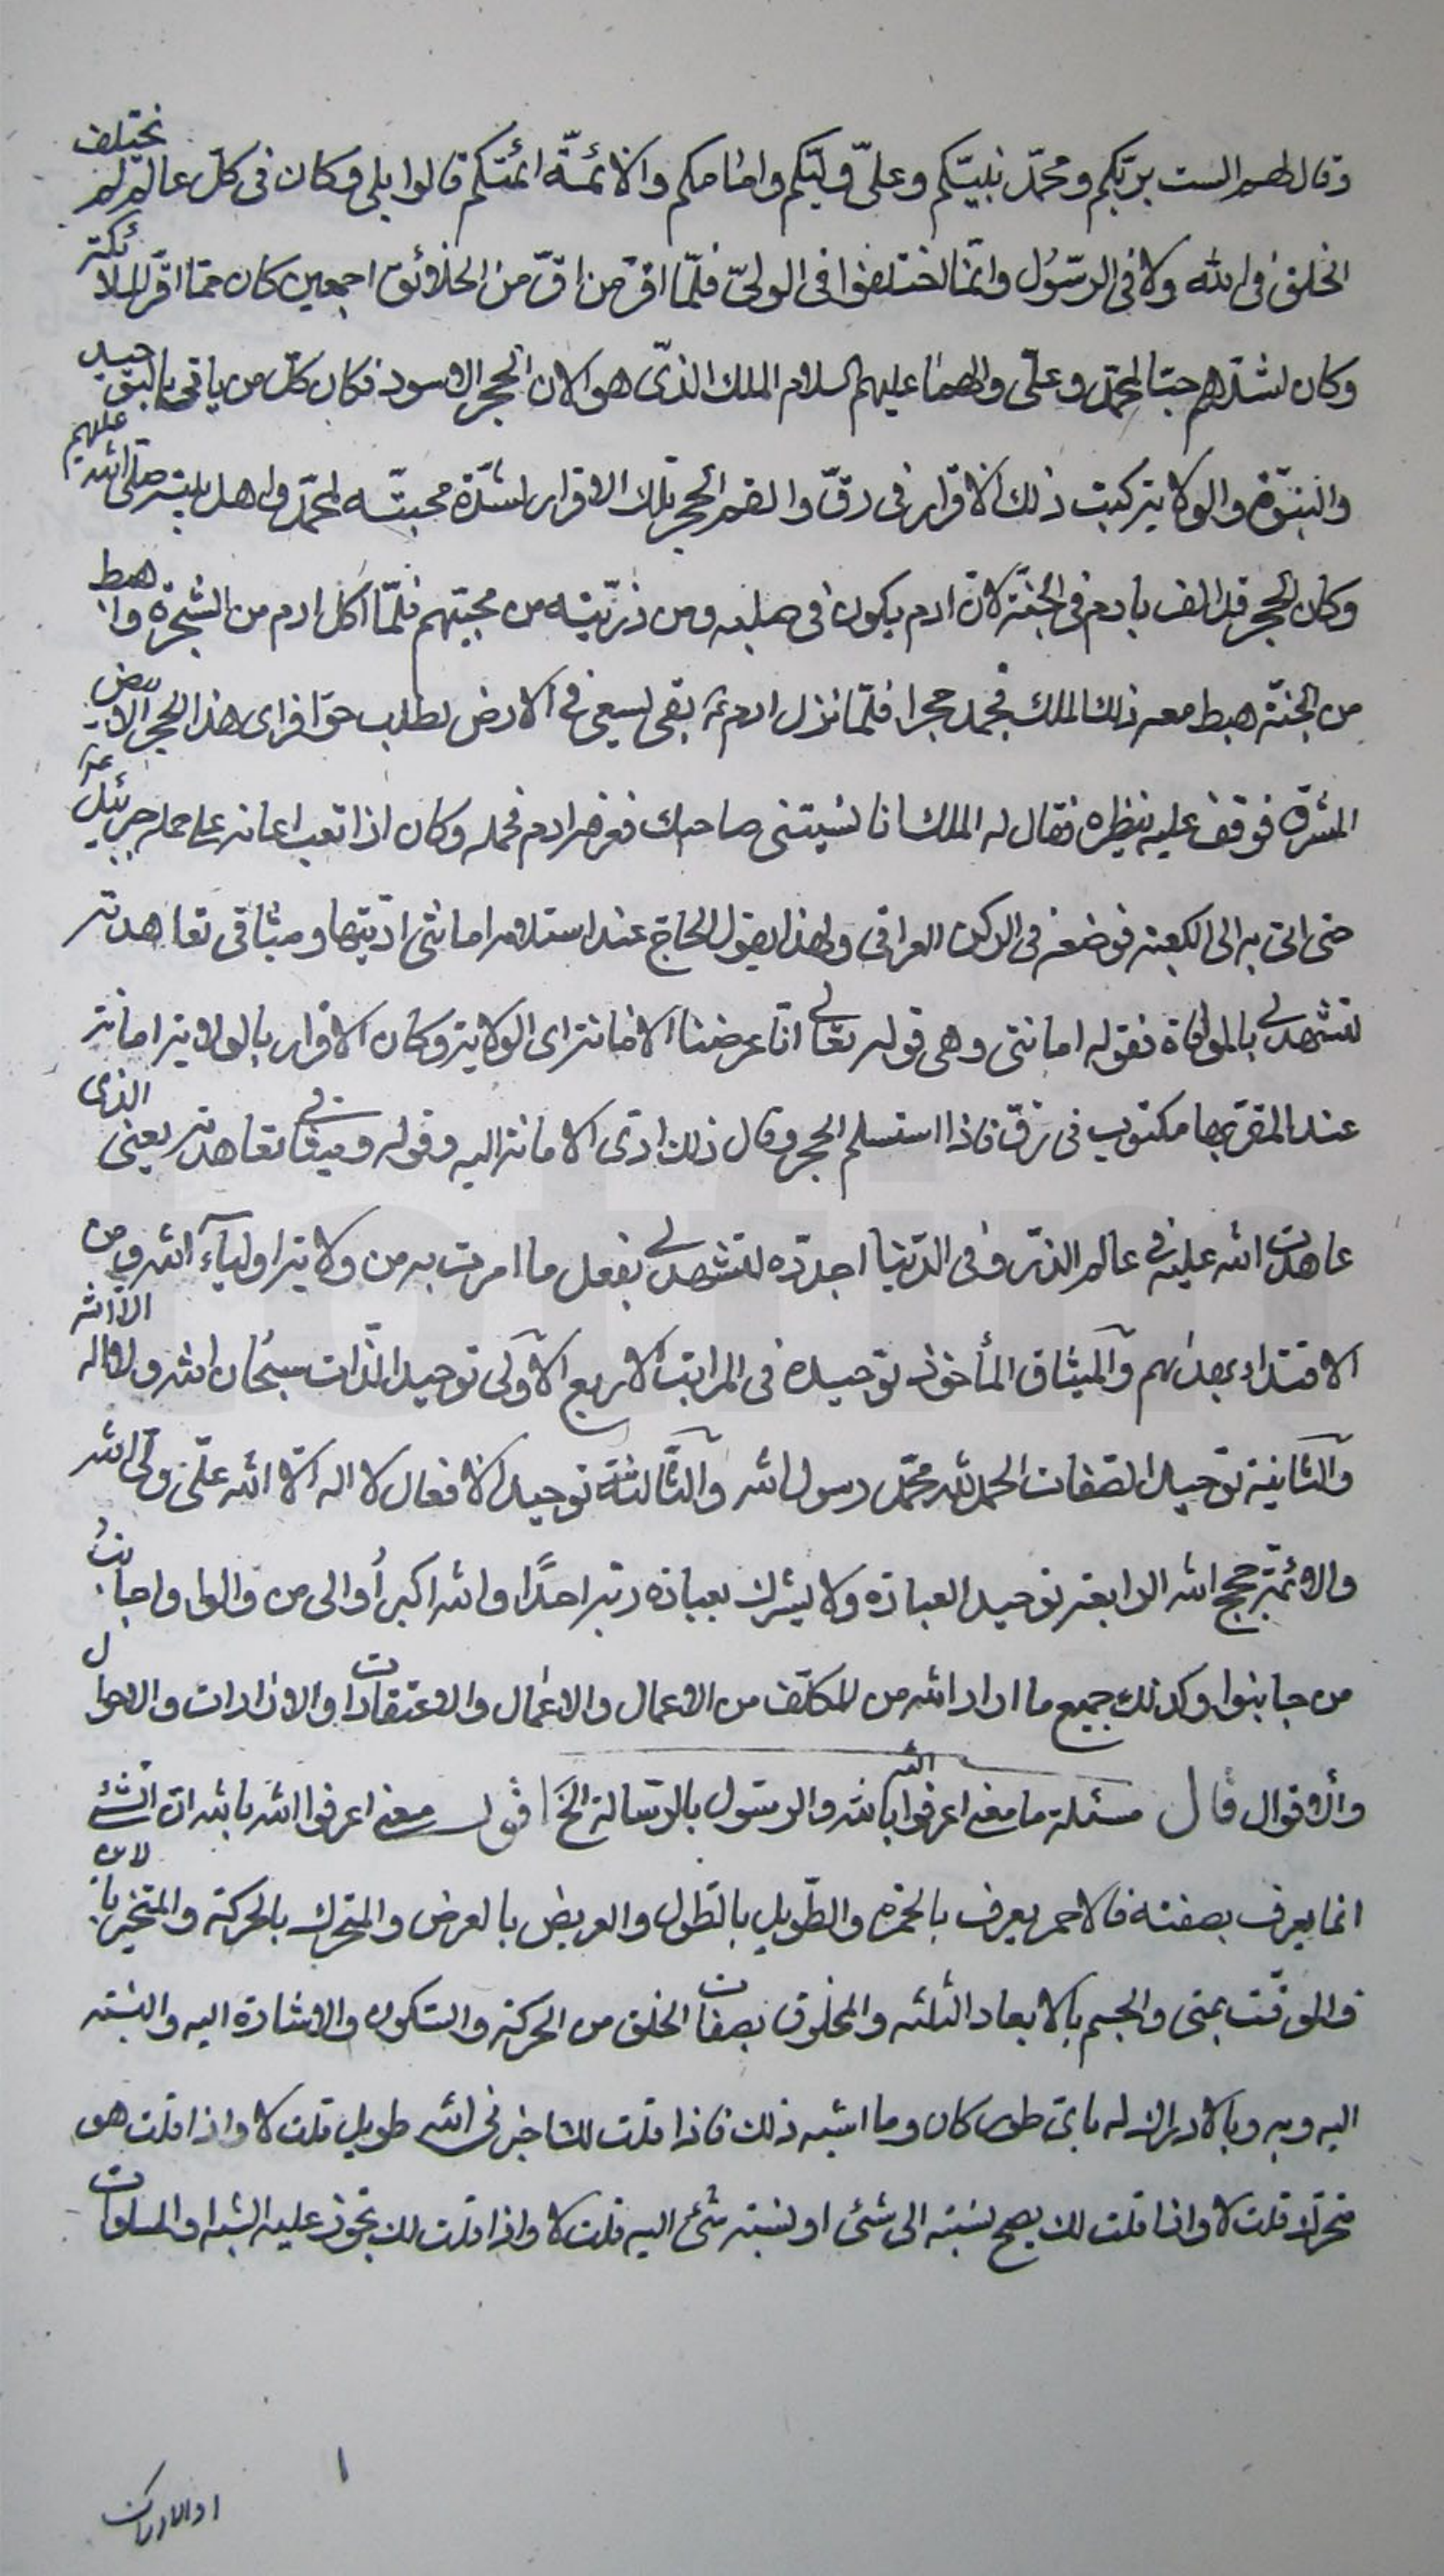 وقال لهم الست بربكم ومحمّد نبيّكم وعليّ وليّكم وامامكم والائمّة ائمتكم قالوا بلى وكان في كلّ عالم لم تختلف
الخلق في الله ولا في الرسُول وانّما اختلفوا في الوليّ فلمّا اقرّ من اقرّ من الخلائق اجمعين كان ممّا اقرّ الملائكة
وكان اشدّهم حبّا لمحمّد وعليّ والهما عليهم السلام الملك الذّي هو الان الحجر الاسود فكان كلّ من ياتي بالتوحيد
والنبوّة والولاية كتبت ذلك الاقرار في رقّ والقم الحجر تلك الاقرار لشدّة محبّته لمحمّد واهل بيته صلى الله عليهم
وكان الحجر قد الف بادم في الجنّة لانّ ادم يكون في صلبه ومن ذرّيته من محبّيهم فلمّا اكل ادم من الشجرة واهبط
من الجنّة هبط معه ذلك الملك فجمد حجرا فلمّا نزل ادم ع بقى يسعى في الارض لطلب حوّا فراى هذا الحجر الابيض
المشرق فوقف عليه ينظره فقال له الملك انا نسيتني صاحبك فعرفه ادم فحمله وكان اذا تعب اعانه على حمله جبرئيل ع
حتى اتى به الى الكعبة فوضعه في الركن العراقي ولهذا يقول الحاج عند استلامه امانتي ادّيتها وميثاقي تعاهدته
لتشهد لي بالموافاة فقوله امانتي وهي قوله تعالى انّا عرضنا الامانة اى الولاية وكان الاقرار بالولاية امانة
عند المقرّ بها مكتوب في رقّ فاذا استلم الحجر وقال ذلك ادّى الامانة اليه وقوله وميثاقي تعاهدته يعنى الذى
عاهدت الله عليه في عالم الذرّ وفي الدّنيا اجدّده لتشهد لي بفعل ما امرت به من ولاية اولياء الله ومن
الاقتداء بهديهم والميثاق المأخوذ توحيده في المراتب الاربع الاولى توحيد الذّات سبحان الله ولا اله الا الله
والثانية توحيد الصّفات الحمد لله محمّد رسول الله والثّالثة توحيد الافعال لا اله الّا الله عليّ وليّ الله
والائمّة حجج الله الرابعة توحيد العبادة ولا يشرك بعبادة ربّه احدًا والله اكبر أوالى من والوا واجانبُ
من جانبوا وكذلك جميع ما اراد الله من المكلّف من الاعمال والاعمال والاعتقادات والارادات والاحوال
والاقوال قال مسئلة ما معنى اعرفوا الله بالله والرسول بالرّسالة الخ اقول معنى اعرفوا الله بالله انّ الشّئ
انما يعرف بصفته فالاحمر يعرف بالحمرة والطّويل بالطّول والعريض بالعرض والمتحرك بالحركة والمتحيّز بالاين
والموقّت بمتى والجسم بالابعاد الثلثه والمخلوق بصفات الخلق من الحركة والسّكون والاشارة اليه والنسبة
اليه وبه وبالادراك له باىّ طور كان وما اشبه ذلك فاذا قلت لك اخبرني الله طويل قلت لا واذا قلت هو
متحرّك قلت لا واذا قلت لك يصح نسبته الى شئ او نسبة شئ اليه قلت لا واذا قلت لك تجوز عليه الشبه والمساوات
١
او الادراك